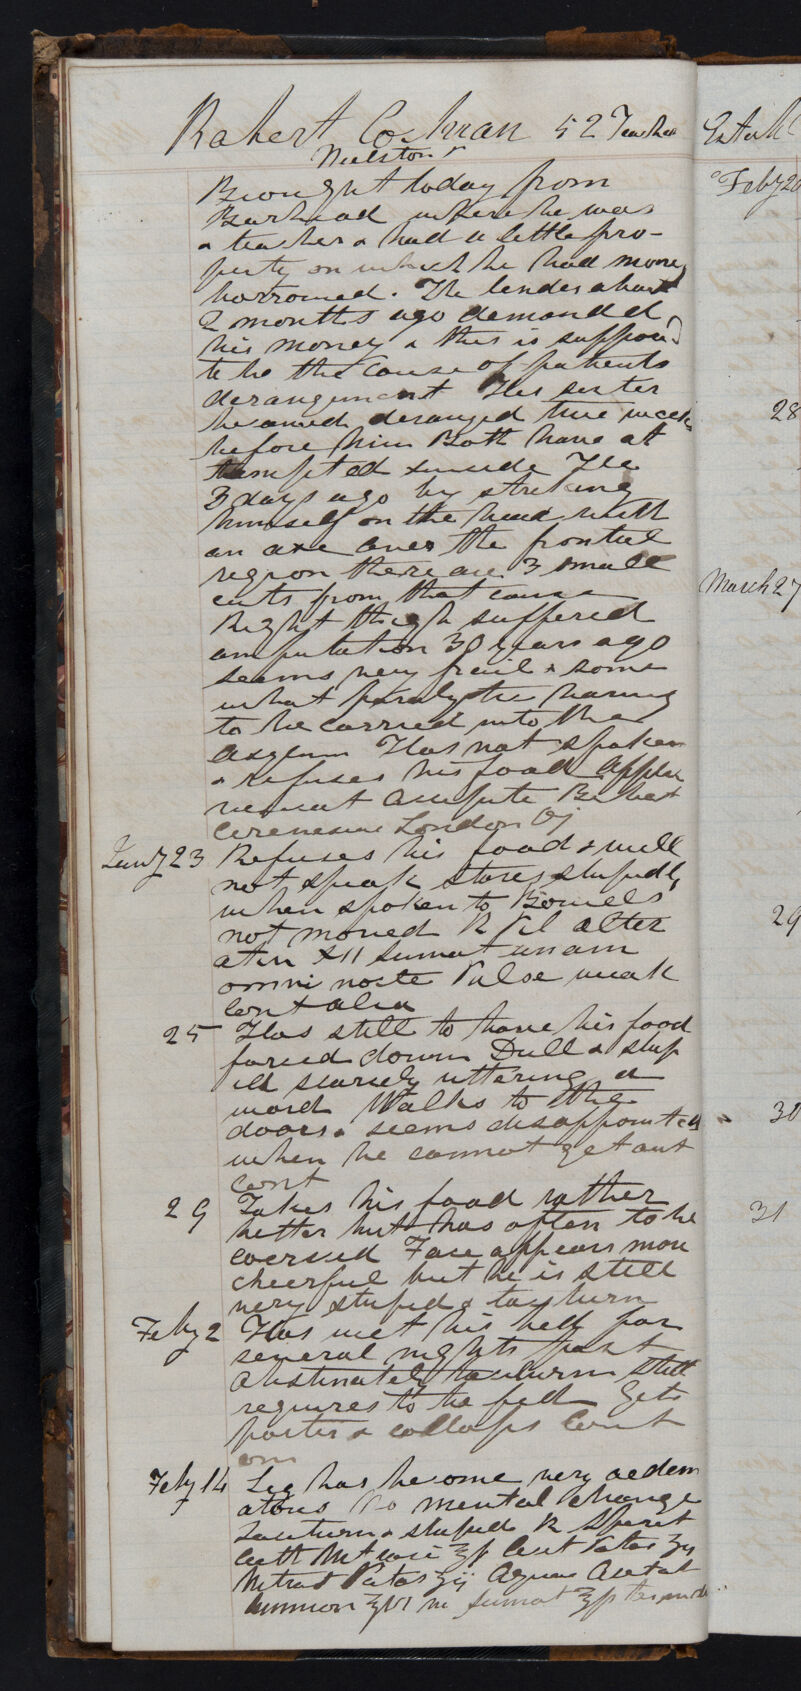 Robert Cochran 52 Teacher
Neilston
Brought today from
Barhead where he was
a teacher & had a little pro-
perty on which he had money
borrowed. The lender about
2 months ago demanded
his money & this is supposed
to be the cause of patients
derangement His sister
became deranged three weeks
before him Both have at
tempted suicide He
3 days ago by striking
himself on the head with
an axe over the frontal
region there are 3 small
cuts from that cause
Right thigh suffered
amputation 30 years ago
seems very frail & some
what paralytic having
to be carried into the
asylum Has not spoken
& refuses his food

London
Jany 23 Refuses his food & will
not speak stares stupidly
when spoken to Bowels
not moved R Pil
sumat unam
omni nocte Pulse weak
Cont alia
25 Has still to have his food
forced down Dull & stup
id scarcely uttering a
word Walks to the
doors & seems disappointed
when he cannot get out
Cont
29 Takes his food rather
better but has often to be
coerced Face appears more
cheerful but he is still
very stupid & taciturn
Feby 2 Has wet his bed for
several nights past
Obstinately taciturn still
requires to be fed Gets
porter & collops Cont
om
Feby 14 Leg has become very oedem
atous No mental change
Taciturn & stupid R Spirit
Aeth Nit
Nitrat Potas Aquae Acetat
Ammon sumat
Entered
Feby 20
28
March 27
29
30
31